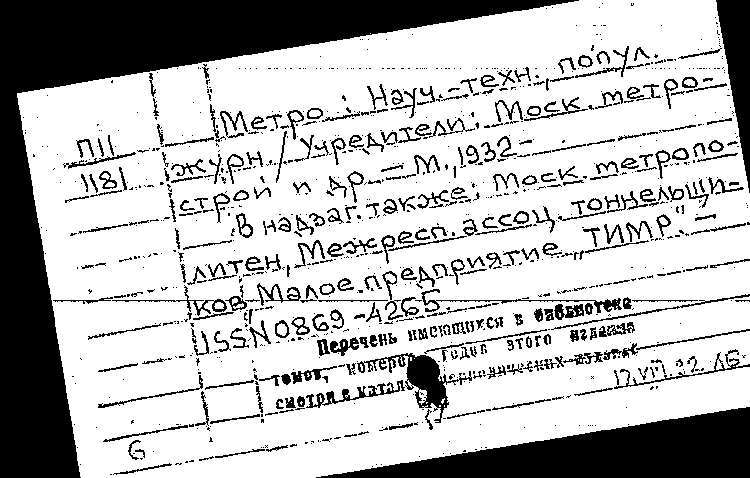 П11
1181
Метро : Науч.-техн., попул.
журн. / Учредители: Моск. метро-
строй и др. – М., 1932 –
В надзаг. также: Моск. метропо-
литен, Межресп. ассоц. тоннельщи-
ков, Малое предприятие „ТИМР“. –
ISSN 0869-4265.
Перечень имеющихся в библиотеке
томов, номеров, годов этого издания
смотри в периодических изданий
6